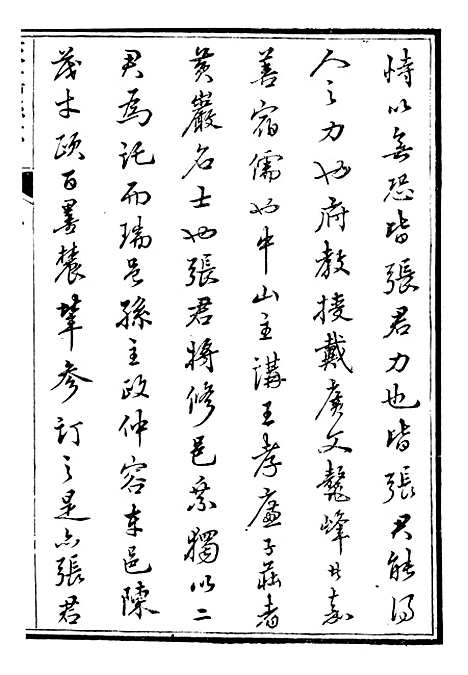 恃以無恐皆張君力也皆張君能得
人之力也府教授戴廣文鼇峰其嘉
善宿儒也中山主講王孝廉子莊者
黄巖名士也張君將修邑乘獨以二
君爲託而瑞邑孫主政仲容本邑陳
茂才頤百書農輩參訂之是亦張君